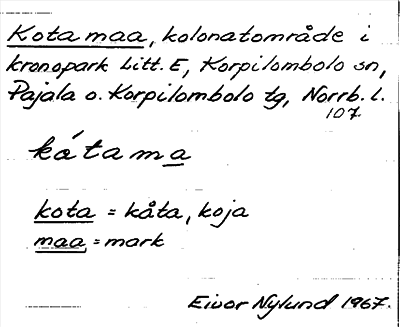 Kota maa, kolonatområde i
kronopark Litt. E, Korpilombolo sn,
Pajala o. Korpilombolo tg, Norrb. l.
107.
kátama
kota = kåta, koja
maa = mark
Eivor Nylund 1967.